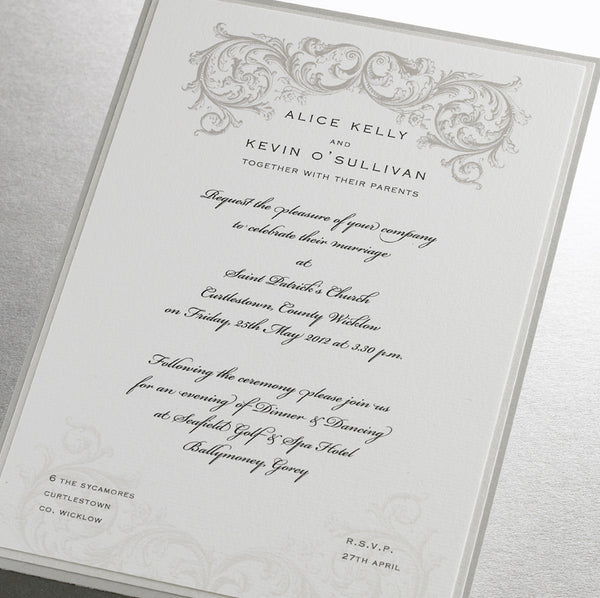 ALICE KELLY
AND
KEVIN O'SULLIVAN
TOGETHER WITH THEIR PARENTS
Request the pleasure of your company
to celebrate their marriage
at
Saint Patrick's Church
Curtlestown, County Wicklow
on Friday, 25th May 2012 at 3.30 p.m.
Following the ceremony please join us
for an evening of Dinner & Dancing
at Seafield Golf & Spa Hotel
Ballymoney, Gorey
6 THE SYCAMORES
CURTLESTOWN
CO. WICKLOW
R.S.V.P.
27TH APRIL